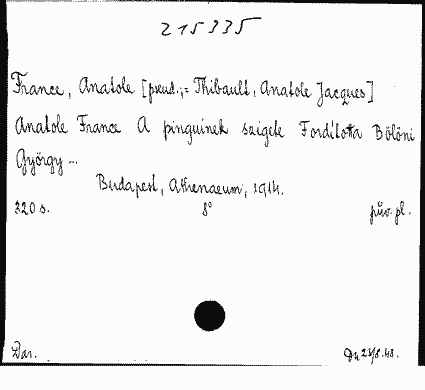 215335
France, Anatole [pseud.;= Thibault, Anatole Jacques]
Anatole France A pinguinek szigete Fordította Bölöni
György ...
Budapest, Athenaeum, 1914.
320 s. 8° pův. pl.
Dar. 48.